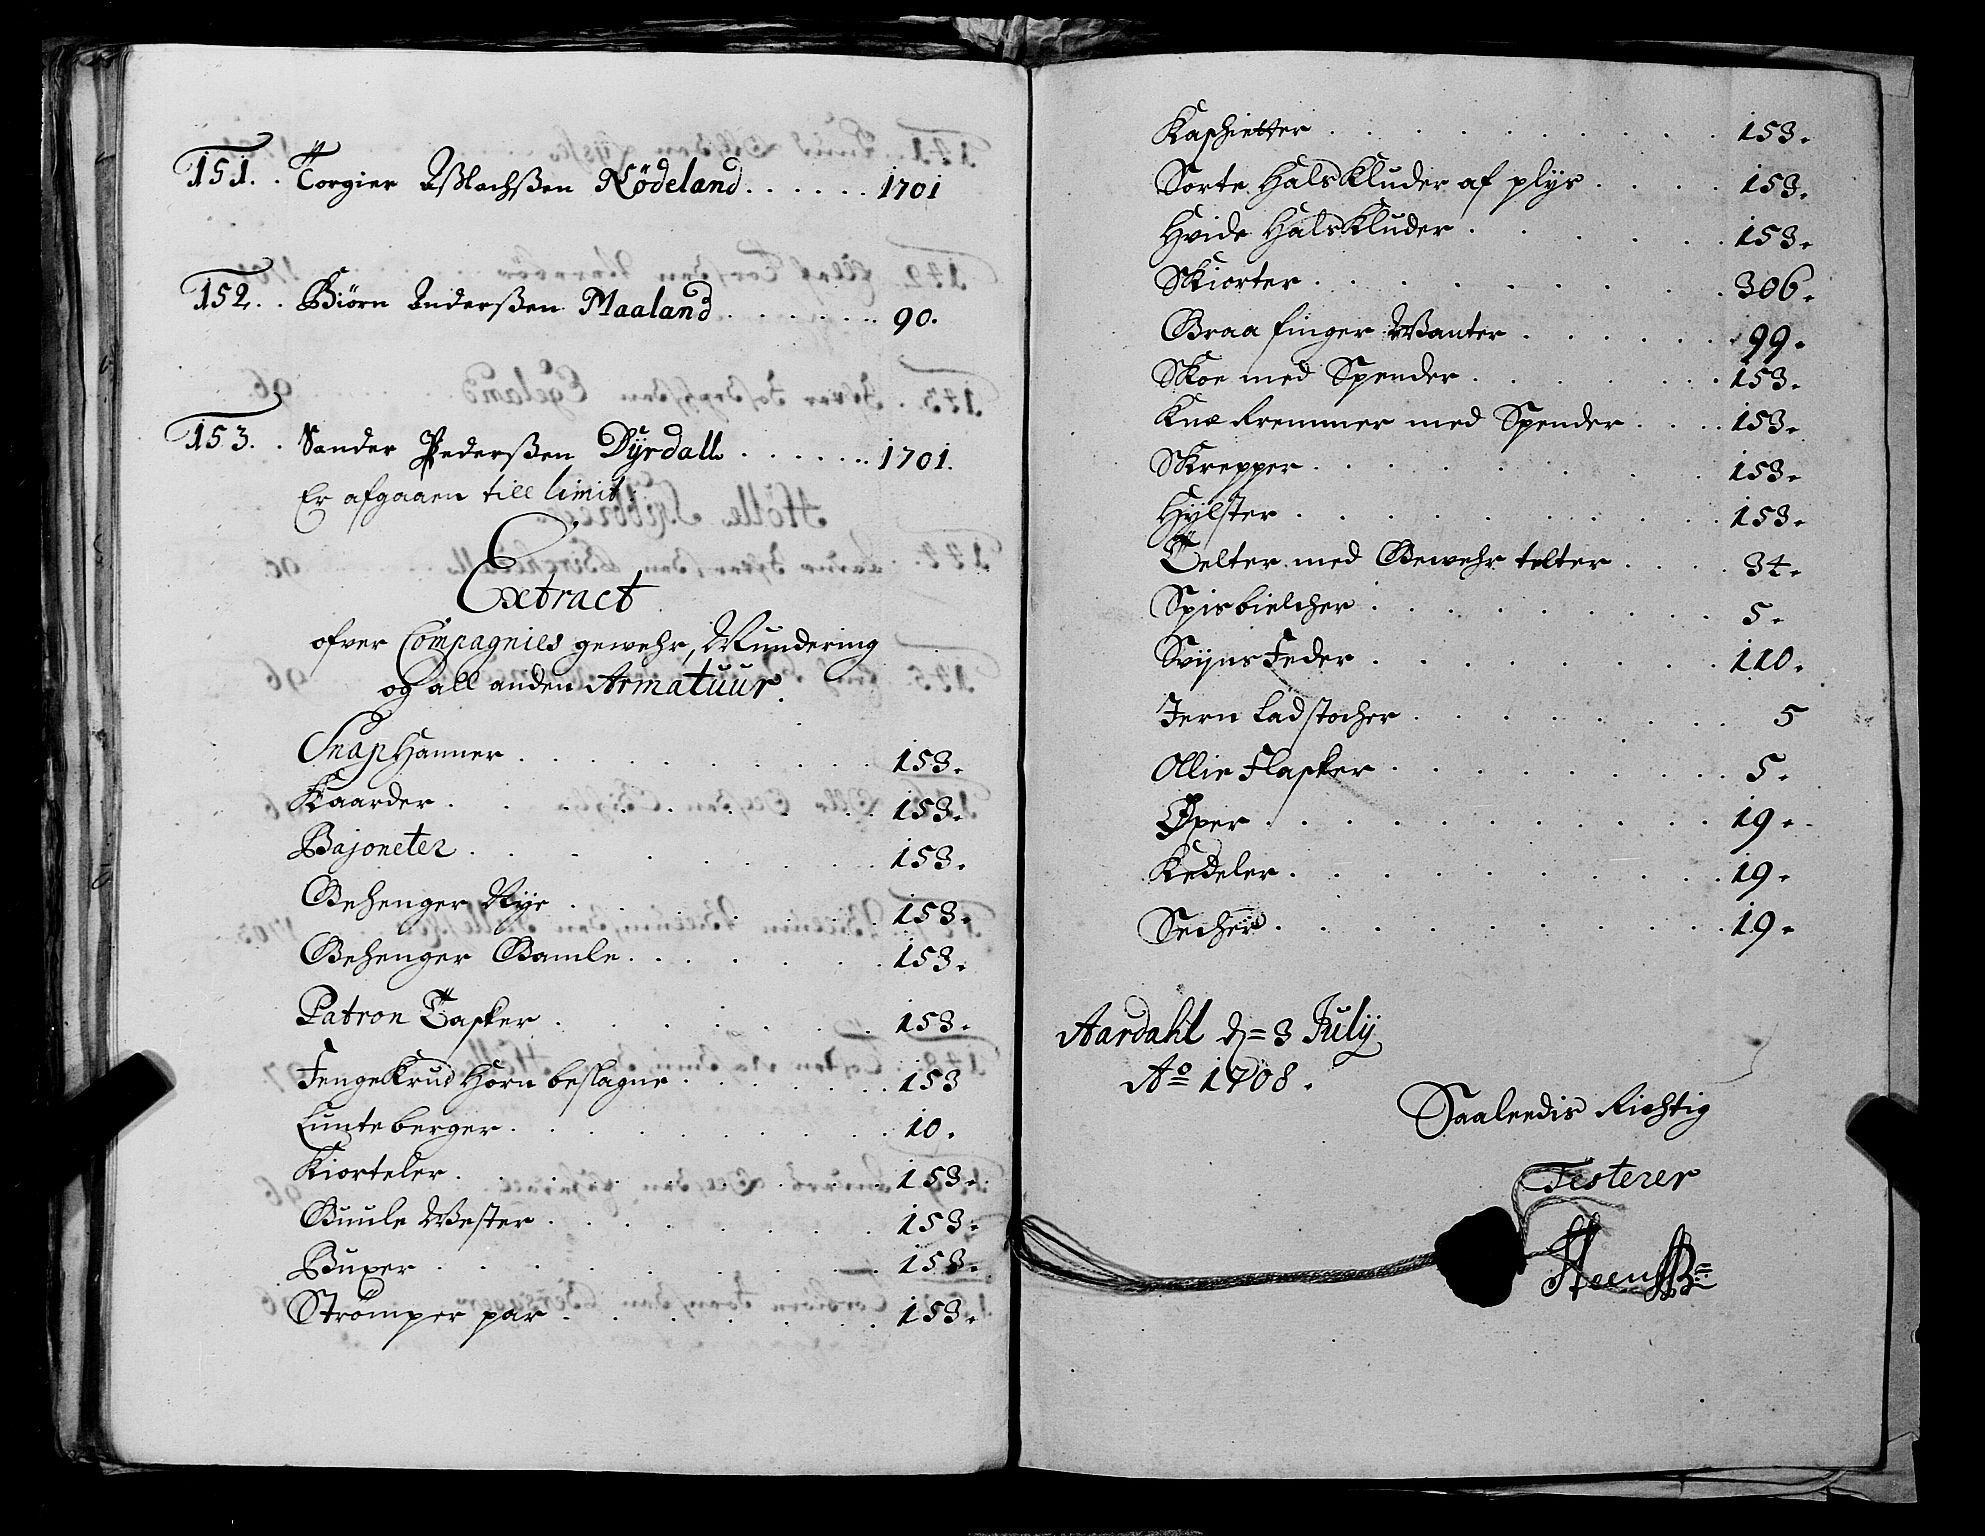 151. Torgier Aslachsßen Nödeland 1701
152. Biörn Andersßen Maaland 90.
153. Sander Pedersßen Dÿrdall 1701.
Er afgaaen till limit:
Extract
ofver Compagnies gewehr, Mundering
og all anden Armatuur.
Snaphanner 153.
Kaarder 153.
Bajoneter 153.
Gehenger Nye 153.
Gehenger Gamle 153.
Patron Tasker 153.
Fengekrud Horn beslagne 153
Lunte berger 10.
Kiorteler 153.
Guule Wester 153.
Buxer 153.
Strömper par 153.
Kaschietter 153.
Sorte Halskluder af plys 153.
Hvide Halskluder 153.
Skiorter 306.
Graa finger Wanter 99.
Skoe med Spender 153.
Knæ Remmer med Spender 153.
Skrepper 153.
Hylster 153.
Telter med Gewehr telter 34.
Spisbielcher 5.
Svijns Feder 110.
Jern Ladstocher 5
Ollie Flasker 5.
Øxer 19.
Kedeler 19.
Secher 19.
Aardahl d= 3 Julÿ
Ao 1708.
Saaleedis Richtig
Testerer